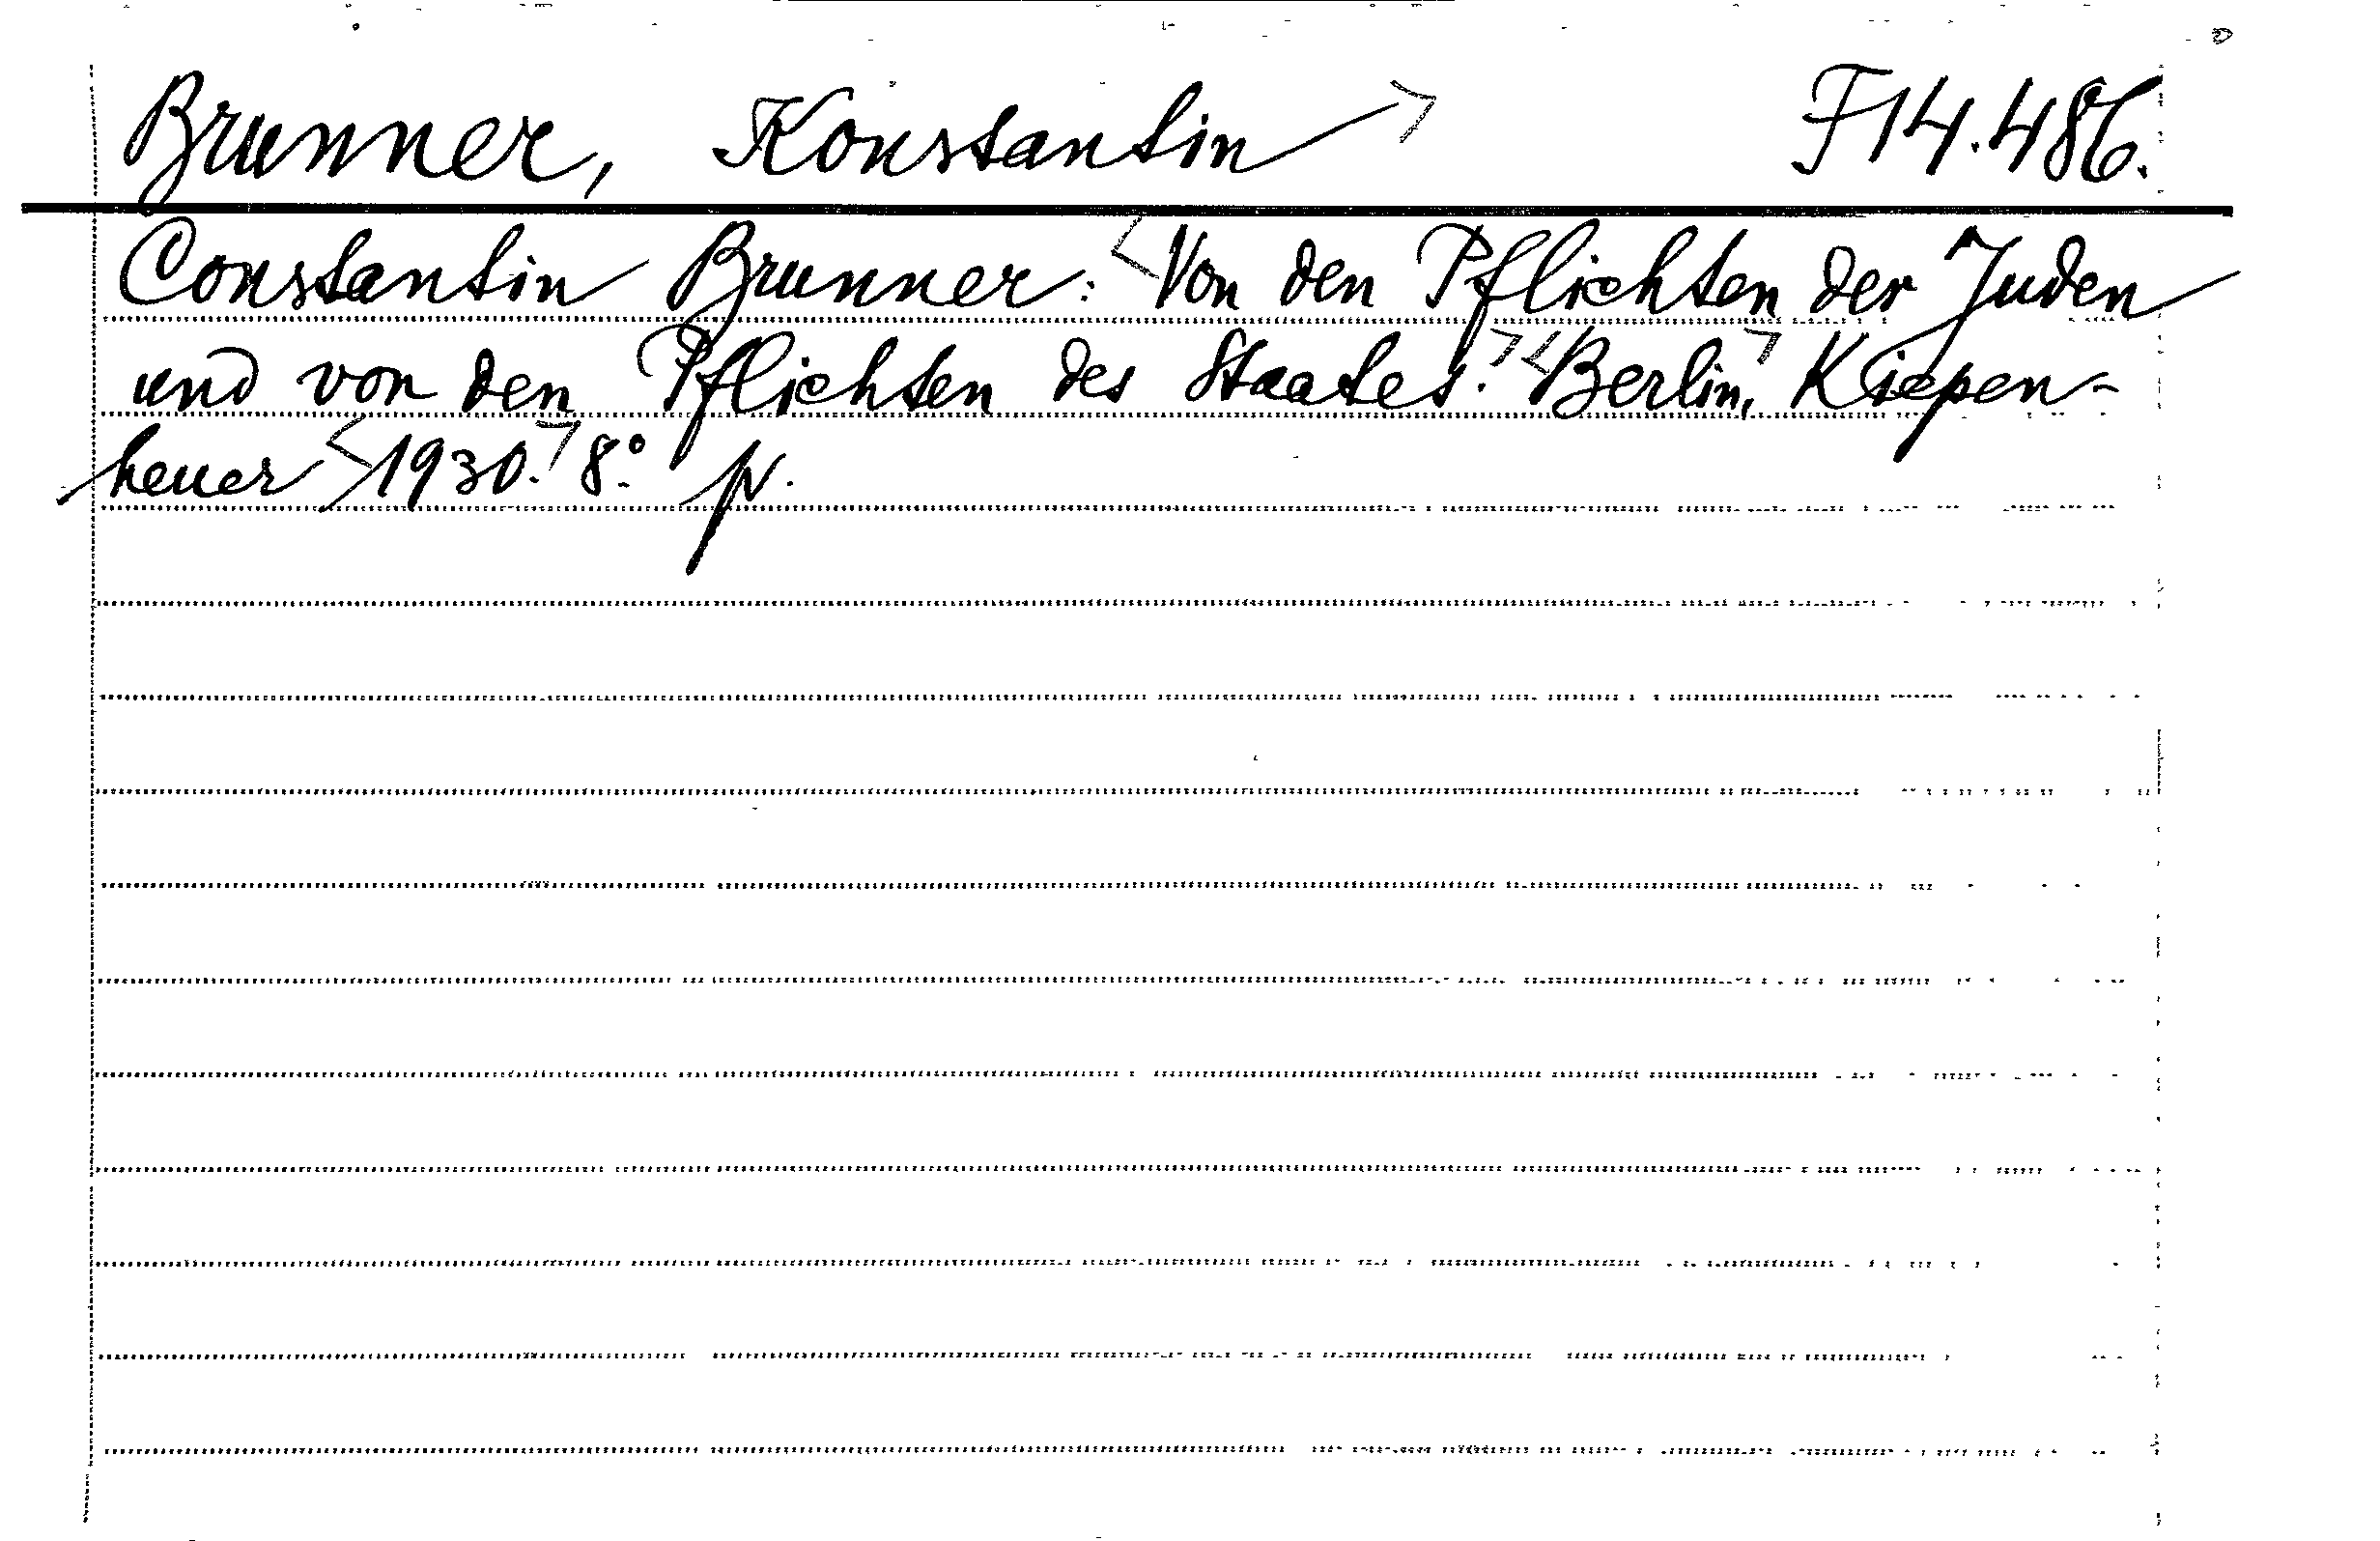 Brunner, Konstantin> F14.486.
Constantin Brunner: <Von den Pflichten der Juden
und von den Pflichten des Staates.> <Berlin,> Kiepen-
heuer <1930.> 8°. N.